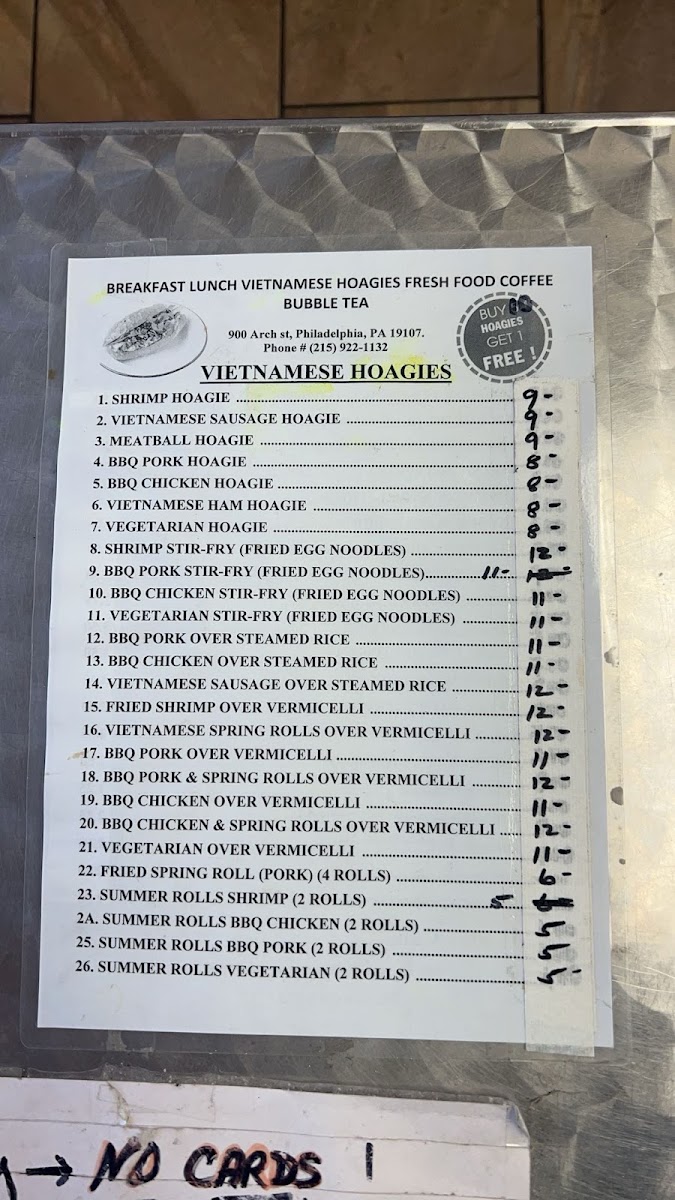 BREAKFAST LUNCH VIETNAMESE HOAGIES FRESH FOOD COFFEE
BUBBLE TEA
900 Arch st, Philadelphia, PA 19107.
Phone # (215) 922-1132
BUY 10
HOAGIES
GET 1
FREE !
VIETNAMESE HOAGIES
1. SHRIMP HOAGIE ........ 9-
2. VIETNAMESE SAUSAGE HOAGIE ........ 9-
3. MEATBALL HOAGIE ........ 9-
4. BBQ PORK HOAGIE ........ 8-
5. BBQ CHICKEN HOAGIE ........ 8-
6. VIETNAMESE HAM HOAGIE ........ 8-
7. VEGETARIAN HOAGIE ........ 8-
8. SHRIMP STIR-FRY (FRIED EGG NOODLES) ........ 12-
9. BBQ PORK STIR-FRY (FRIED EGG NOODLES)........ 11-
10. BBQ CHICKEN STIR-FRY (FRIED EGG NOODLES) ........ 11-
11. VEGETARIAN STIR-FRY (FRIED EGG NOODLES) ........ 11-
12. BBQ PORK OVER STEAMED RICE ........ 11-
13. BBQ CHICKEN OVER STEAMED RICE ........ 11-
14. VIETNAMESE SAUSAGE OVER STEAMED RICE ........ 12-
15. FRIED SHRIMP OVER VERMICELLI ........ 12-
16. VIETNAMESE SPRING ROLLS OVER VERMICELLI ........ 12-
17. BBQ PORK OVER VERMICELLI ........ 11-
18. BBQ PORK & SPRING ROLLS OVER VERMICELLI ........ 12-
19. BBQ CHICKEN OVER VERMICELLI ........ 11-
20. BBQ CHICKEN & SPRING ROLLS OVER VERMICELLI ........ 12-
21. VEGETARIAN OVER VERMICELLI ........ 11-
22. FRIED SPRING ROLL (PORK) (4 ROLLS) ........ 6-
23. SUMMER ROLLS SHRIMP (2 ROLLS) ........ 5
2A. SUMMER ROLLS BBQ CHICKEN (2 ROLLS) ........ 5
25. SUMMER ROLLS BBQ PORK (2 ROLLS) ........ 5
26. SUMMER ROLLS VEGETARIAN (2 ROLLS) ........ 5-
→ NO CARDS !